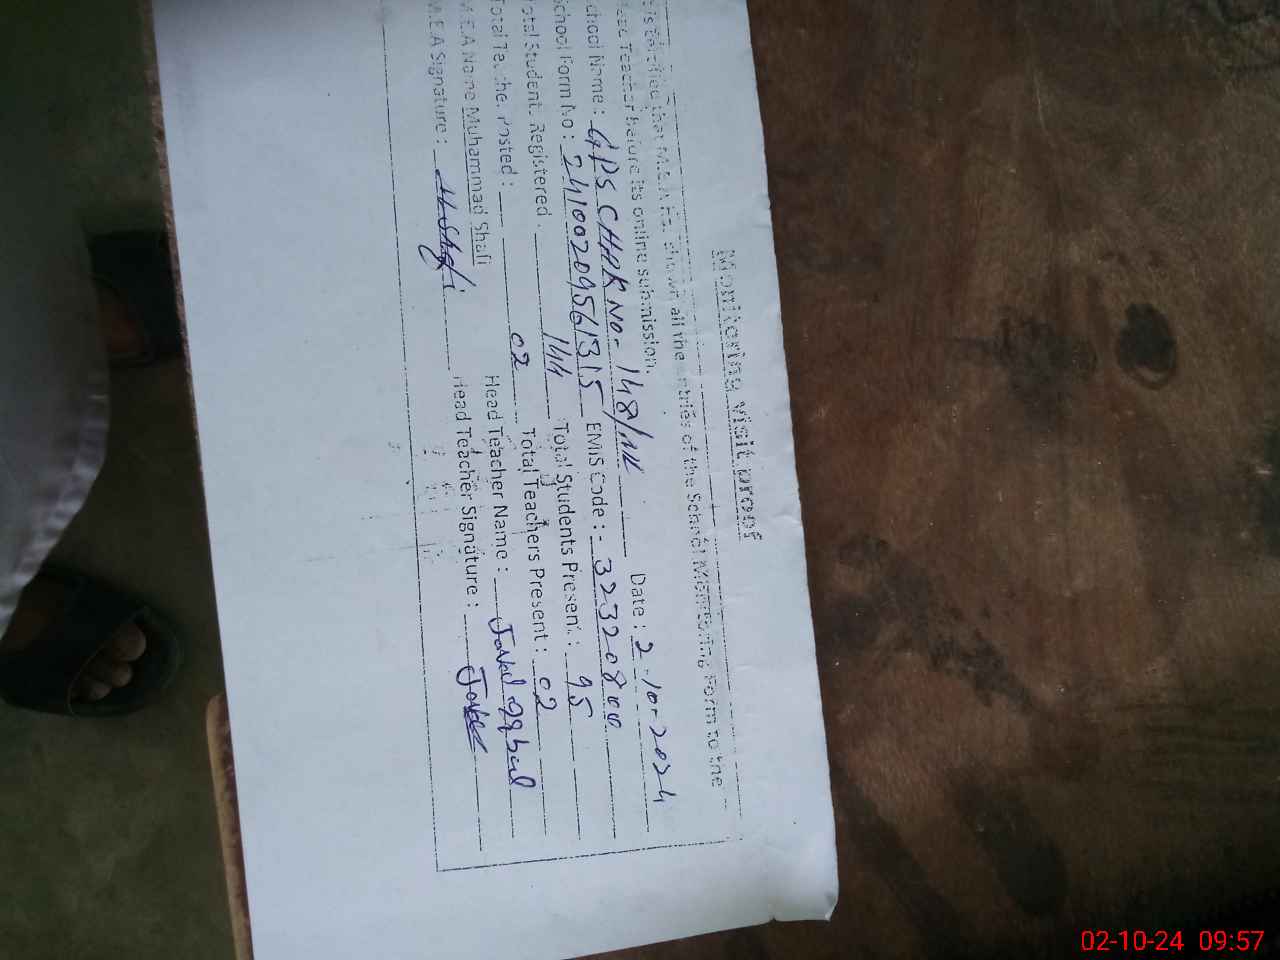 Monitoring visit proof
that M.E.A has shown all the entries of the School Monitoring Form to the
Teacher before its online submission.
chool Name : GPS CHAK NO. 148/ML Date : 2-10-2024
chool Form No : 24100209561315 EMIS Code : 32320800
otal Students Registered : 144 Total Students Present : 95
Total Teacher Posted : 02 Total Teachers Present : 02
M.E.A Name Muhammad Shafi Head Teacher Name : Javed Iqbal
M.E.A Signature : M.Shafi Head Teacher Signature : Javed
02-10-24 09:57